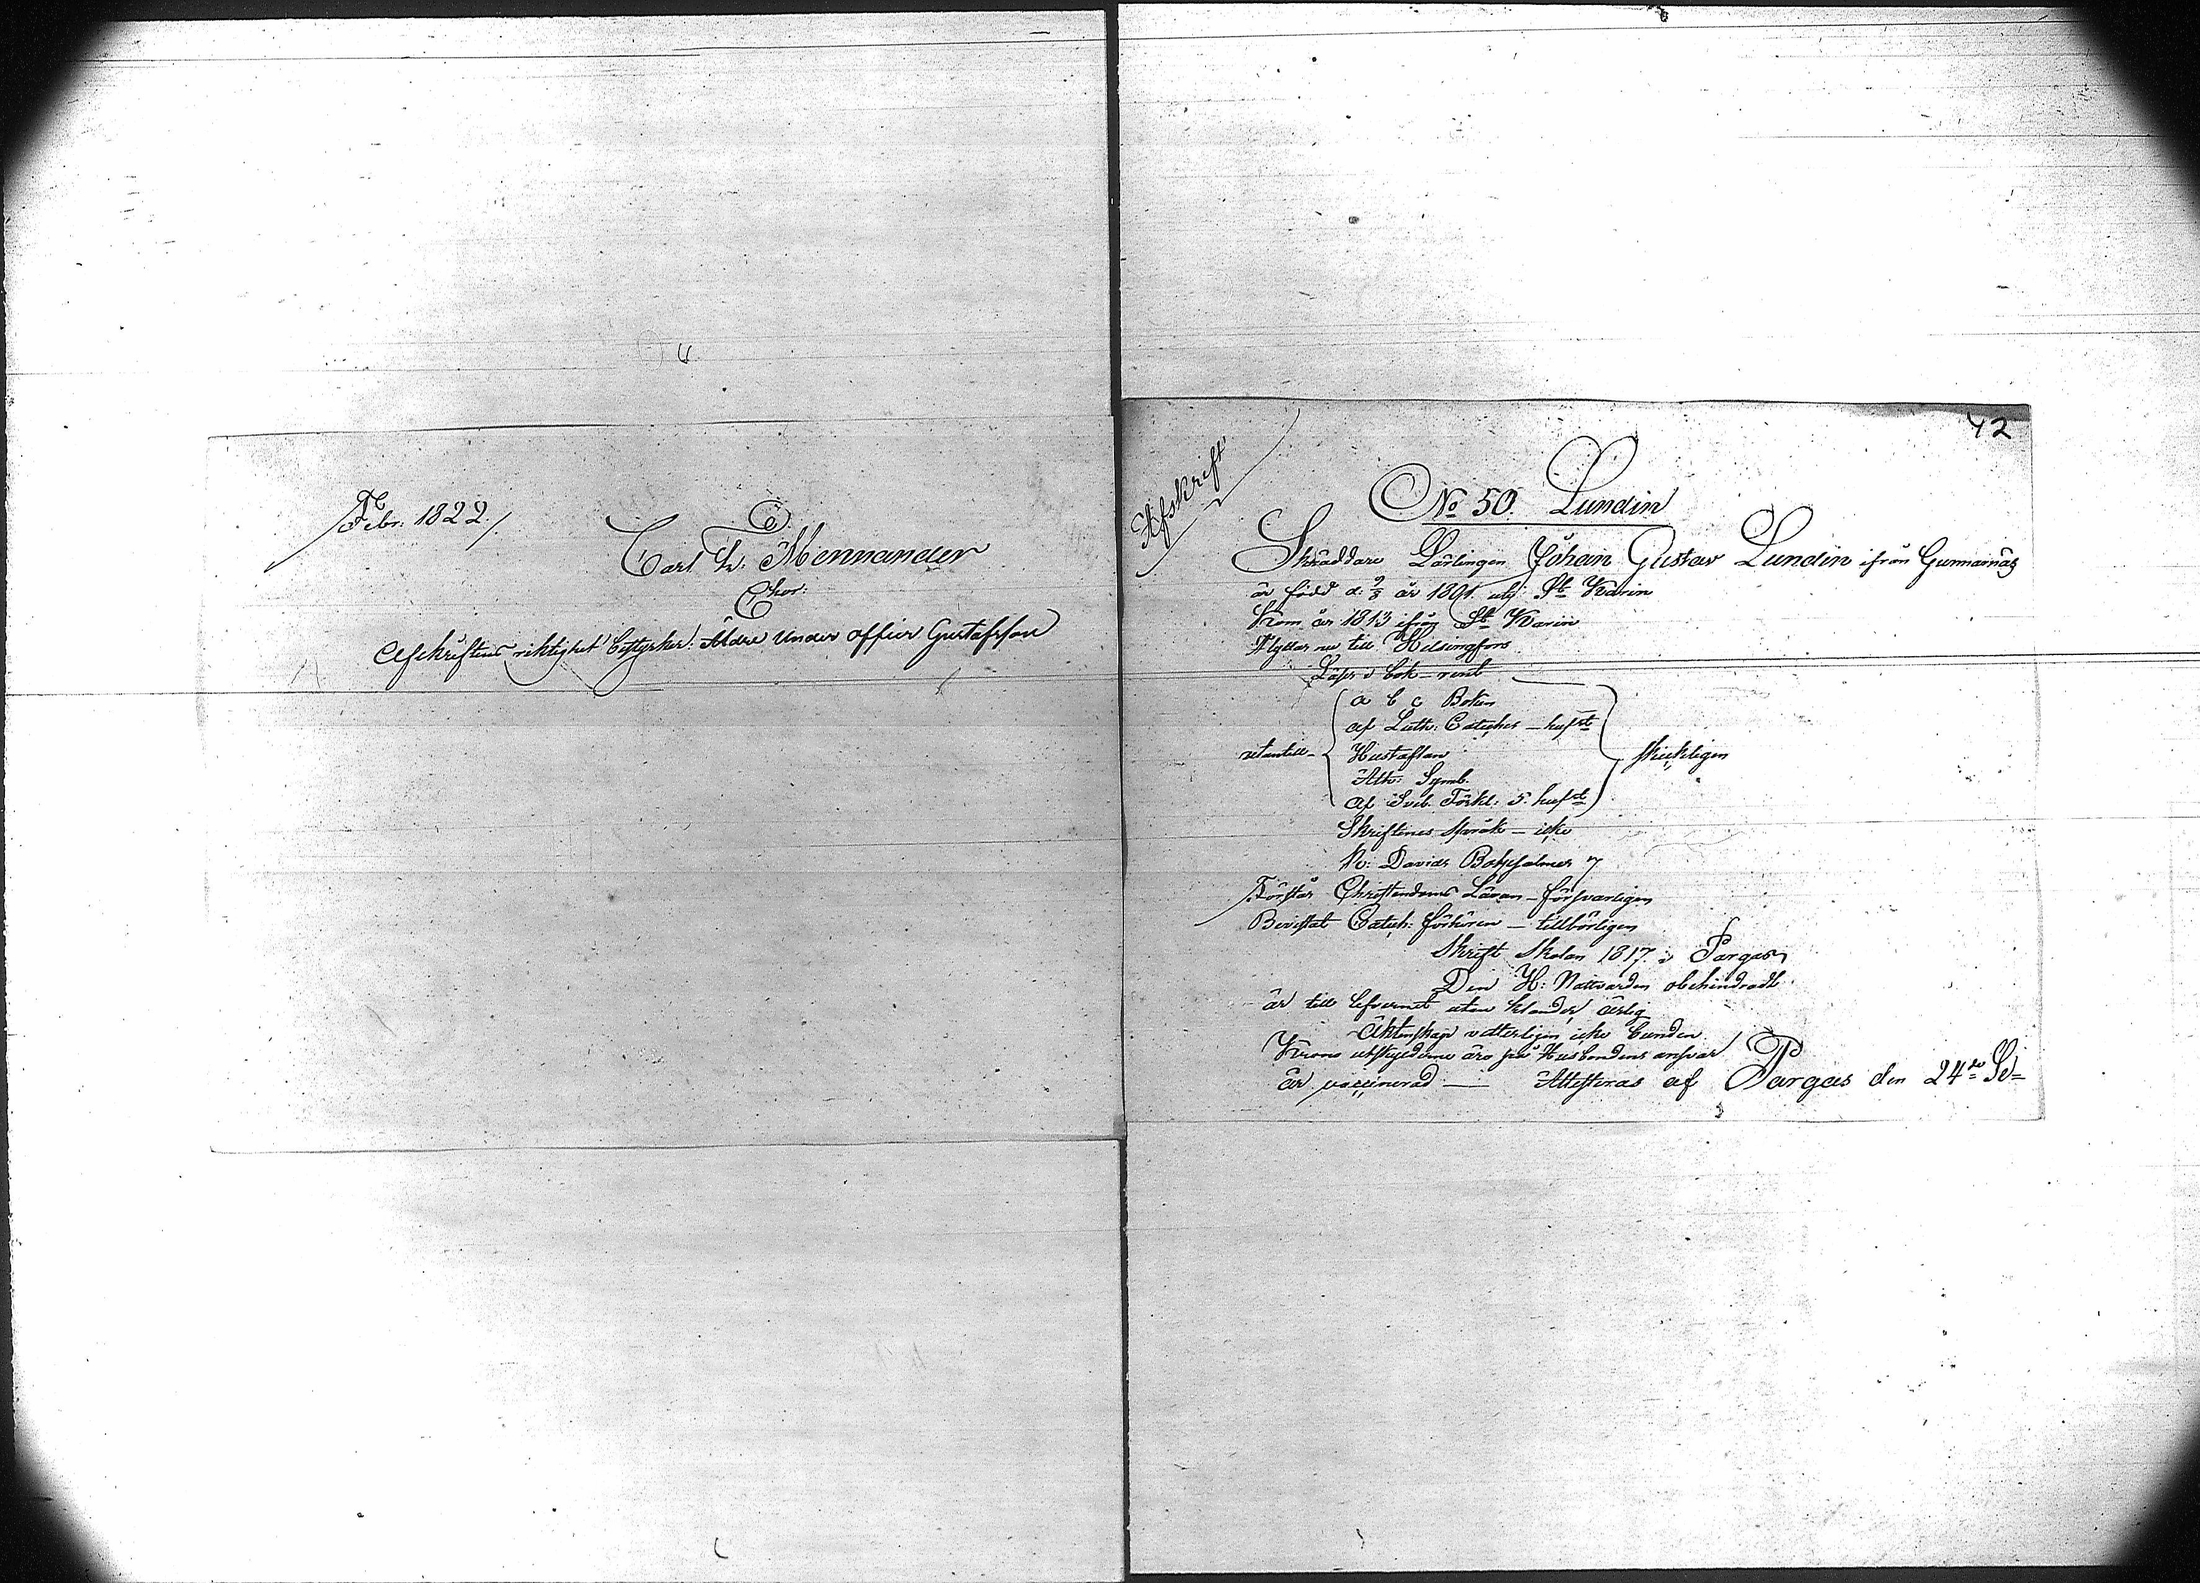 Febr: 1822.
Carl Fr: Mennander
Chor:
Afskriftens riktighet bestyrker: Äldre Under officer Gustafsson
42
Afskrift
No 50. Lundin
Skräddare Lärlingen Johan Gustav Lundin ifrån Gunnarnäs
är född d: 9/8 år 1801 uti St Karin
Kom år 1813 ifrån St Karin
Flyttar nu till Helsingfors
Läser i bok - rent
a b c Boken
af Luth: Cateches - hufst
utantill - Hustaflan skickligen
Ath: Symb.
af Sveb. Förkl: 5. hufst
Skriftenes språk - icke
K: Davids Botpsalmer 7
Förstår Christendoms Läran - försvarligen
Bevistat Catech: förhören - tillbörligen
Skrift Skolan 1817 i Pargas
Den H: Nattvarden obehindradt
är till lefvernet utan klander ärlig
Äktenskap vetterligen icke bunden
Krono utskylderne äro på Husbondens ansvar
är vaccinerad - Attesteras af Pargas den 24de